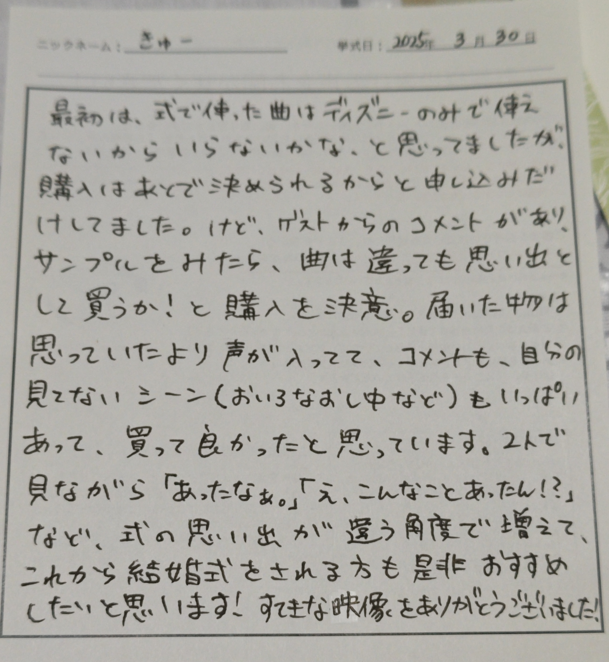 ニックネーム: きゅー 挙式日: 2025年 3月 30日
最初は、式で使った曲はディズニーのみで使え
ないからいらないかな、と思ってましたが、
購入はあとで決められるからと申し込みだ
けしてました。けど、ゲストからのコメントがあり、
サンプルをみたら、曲は違っても思い出と
して買うか!と購入を決意。届いた物は
思っていたより声が入ってて、コメントも、自分の
見てないシーン(おいろなおし中など)もいっぱい
あって、買って良かったと思っています。2人で
見ながら「あったなぁ。」「え、こんなことあったん!?」
など、式の思い出が違う角度で増えて、
これから結婚式をされる方も是非おすすめ
したいと思います!すてきな映像をありがとうございました!